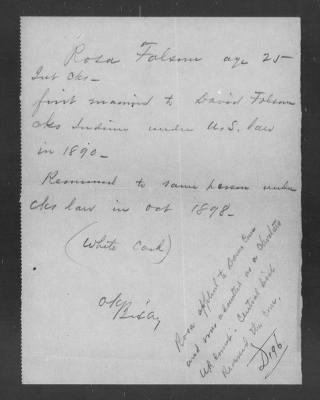 Rosa Folsom age 25
Int cks -
first married to David Folsom
cks Indian under U.S. law
in 1890 -
Remarried to same person under
cks law in oct 1898 -
(White Card)
OK
Rosa applied to Dawes Com
and was admitted as a Choctaw
Central Dist
Reversed the
D196